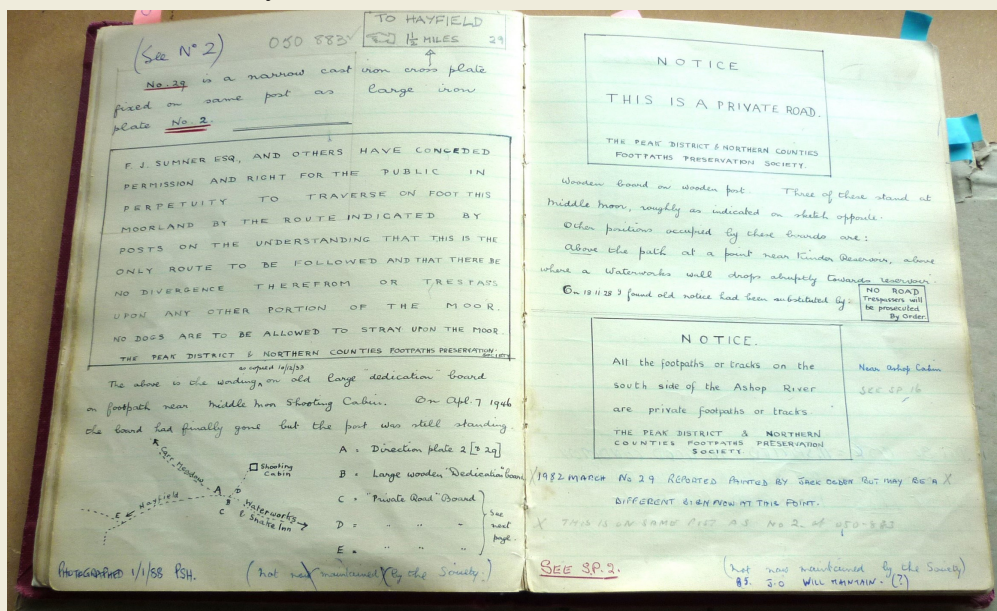 (See No 2)
050 883
TO HAYFIELD
1½ MILES 29
No. 29 is a narrow cast iron cross plate
fixed on same post as large iron
plate No. 2.
F. J. SUMNER ESQ., AND OTHERS HAVE CONCEDED
PERMISSION AND RIGHT FOR THE PUBLIC IN
PERPETUITY TO TRAVERSE ON FOOT THIS
MOORLAND BY THE ROUTE INDICATED BY
POSTS ON THE UNDERSTANDING THAT THIS IS THE
ONLY ROUTE TO BE FOLLOWED AND THAT THERE BE
NO DIVERGENCE THEREFROM OR TRESPASS
UPON ANY OTHER PORTION OF THE MOOR.
NO DOGS ARE TO BE ALLOWED TO STRAY UPON THE MOOR.
THE PEAK DISTRICT & NORTHERN COUNTIES FOOTPATHS PRESERVATION
SOCIETY
as copied 10/12/33
The above is the wording on old large "dedication" board
on footpath near Middle Moor Shooting Cabin. On Apl. 7 1946
the board had finally gone but the post was still standing.
Carr Meadow
Shooting
Cabin
Hayfield
A
B
C
E
Waterworks
& Snake Inn
A = Direction plate 2 [& 29]
B = Large wooden "Dedication" board
C = "Private Road" Board
D = " " "
E = " " "
See
next
page.
PHOTOGRAPHED 1/1/88 PSH.
(not now maintained by the Society.)
NOTICE
THIS IS A PRIVATE ROAD.
THE PEAK DISTRICT & NORTHERN COUNTIES
FOOTPATHS PRESERVATION SOCIETY.
Wooden board on wooden post. Three of these stand at
Middle Moor, roughly as indicated on sketch opposite.
Other positions occupied by these boards are:
Above the path at a point near Kinder Reservoir, above
where a Waterworks wall drops abruptly towards reservoir.
On 18.11.28 I found old notice had been substituted by:
NO ROAD
Trespassers will
be prosecuted
By Order.
NOTICE.
All the footpaths or tracks on the
south side of the Ashop River
are private footpaths or tracks
THE PEAK DISTRICT & NORTHERN
COUNTIES FOOTPATHS PRESERVATION
SOCIETY.
Near Ashop Cabin
SEE S.P. 16
1982 MARCH No 29 REPORTED PAINTED BY JACK OGDEN BUT MAY BE A X
DIFFERENT SIGN NOW AT THIS POINT.
X THIS IS ON SAME POST AS No 2. at 050-883
SEE S.P.2.
(not now maintained by the Society)
J.O WILL MAINTAIN. (?)